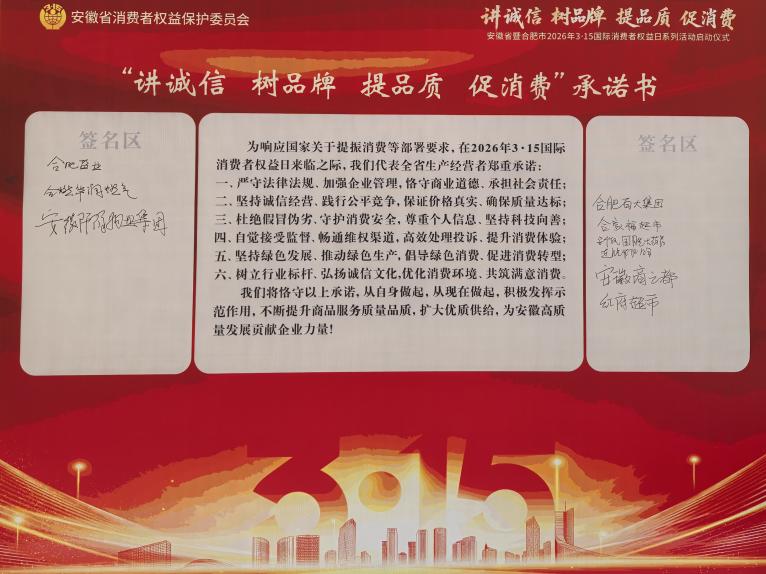 安徽省消费者权益保护委员会
讲诚信 树品牌 提品质 促消费
安徽省暨合肥市2026年3·15国际消费者权益日系列活动启动仪式
“讲诚信 树品牌 提品质 促消费”承诺书
签名区
合肥百业
合肥华润燃气
为响应国家关于提振消费等部署要求，在2026年3·15国际
消费者权益日来临之际，我们代表全省生产经营者郑重承诺：
一、严守法律法规、加强企业管理，恪守商业道德、承担社会责任；
二、坚持诚信经营、践行公平竞争，保证价格真实、确保质量达标；
三、杜绝假冒伪劣、守护消费安全，尊重个人信息、坚持科技向善；
四、自觉接受监督、畅通维权渠道，高效处理投诉、提升消费体验；
五、坚持绿色发展、推动绿色生产，倡导绿色消费、促进消费转型；
六、树立行业标杆、弘扬诚信文化，优化消费环境、共筑满意消费。
我们将恪守以上承诺，从自身做起，从现在做起，积极发挥示
范作用，不断提升商品服务质量品质，扩大优质供给，为安徽高质
量发展贡献企业力量！
签名区
合肥百大集团
合家福超市
安徽商之都
红府超市
3·15